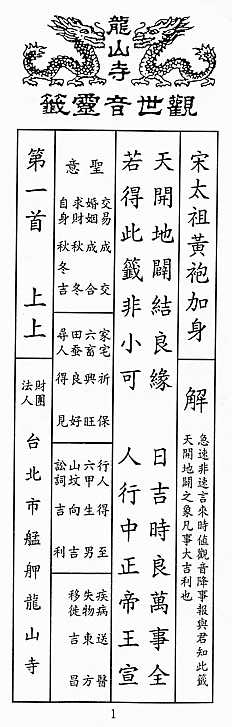 龍山寺
觀世音靈籤
宋太祖黃袍加身
解
急速非速言來時值觀音降事報與君知此籤
天開地闢之象凡事大吉利也
天開地闢結良緣　日吉時良萬事全
若得此籤非小可　人行中正帝王宣
聖意
交易　成　交
婚姻　成　合
求財　秋　冬
自身　秋冬　吉
家宅　祈　保
六畜　興　旺
田蚕　良　好
尋人　得　見
行人　得　至
六甲　生　男
山坟　向　吉
訟詞　吉　利
疾病　送　醫
失物　東　方
移徙　吉　昌
第一首　上上
財團
法人
台北市艋舺龍山寺
1